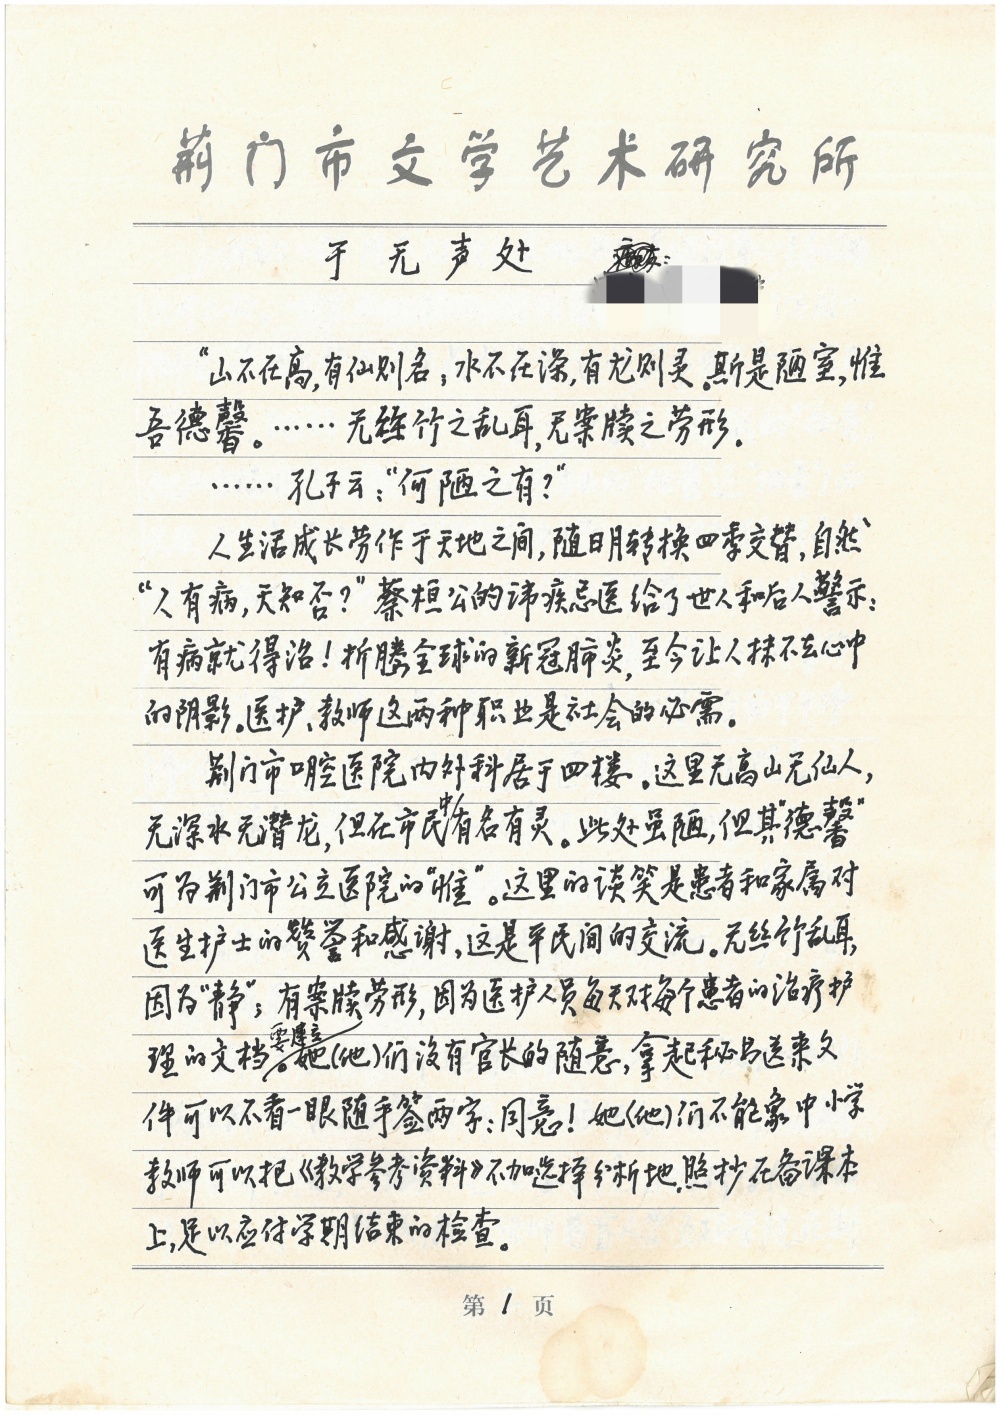 荆门市文学艺术研究所
于无声处
“山不在高，有仙则名；水不在深，有龙则灵。斯是陋室，惟
吾德馨。……无丝竹之乱耳，无案牍之劳形。
……孔子云：“何陋之有？”
人生活成长劳作于天地之间，随日月转换四季交替，自然、
“人有病，天知否？”蔡桓公的讳疾忌医给了世人和后人警示：
有病就得治！折腾全球的新冠肺炎，至今让人抹不去心中
的阴影。医护、教师这两种职业是社会的必需。
荆门市口腔医院内外科居于四楼。这里无高山无仙人，
无深水无潜龙，但在市民中有名有灵。此处虽陋，但其“德馨”
可为荆门市公立医院的“惟”。这里的谈笑是患者和家属对
医生护士的赞誉和感谢，这是平民间的交流。无丝竹乱耳，
因为“静”；有案牍劳形，因为医护人员每天对每个患者的治疗护
理的文档要建立。她（他）们没有官长的随意，拿起秘书送来文
件可以不看一眼随手签两字：同意！她（他）们不能象中小学
教师可以把《教学参考资料》不加选择分析地照抄在备课本
上，足以应付学期结束的检查。
第1页